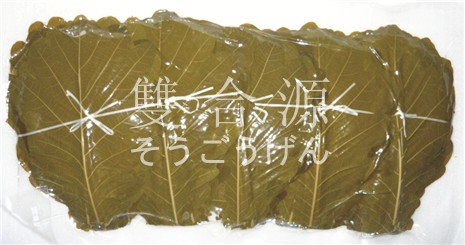 雙合源
そうごうげん